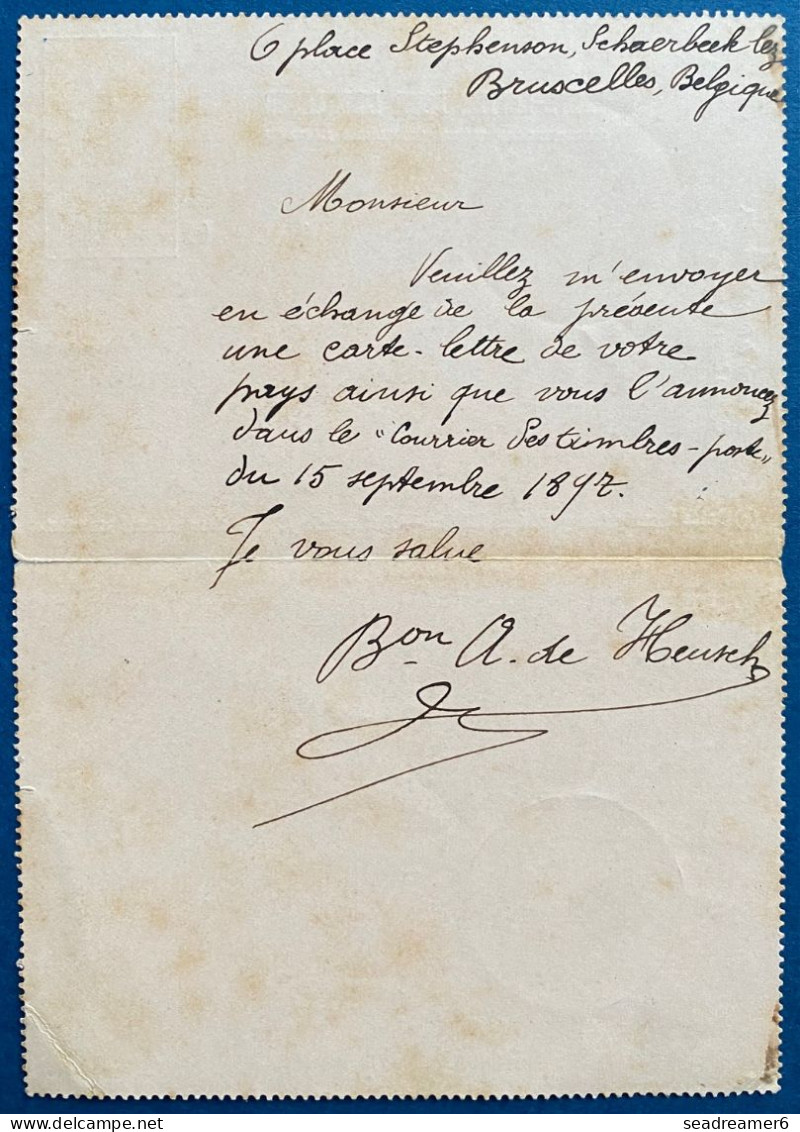 6 place Stephenson, Schaerbeek lez
Bruxelles, Belgique
Monsieur
Veuillez m'envoyer
en échange de la présente
une carte-lettre de votre
pays ainsi que vous l'annoncez
dans le "Courrier des timbres-poste"
du 15 septembre 1897.
Je vous salue
Bon A. de Heusch
© delcampe.net
seadreamer6